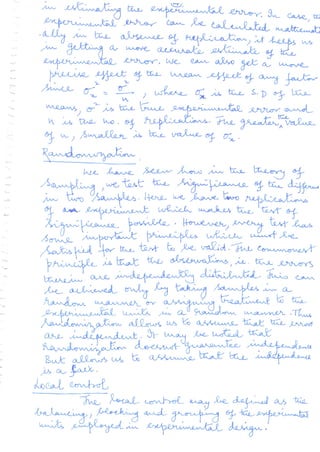 in estimating the experimental error. In case, the
experimental error can be calculated mathemat
-ally in the absence of replication, it helps us
in getting a more accurate estimate of the
experimental error. We can also get a more
precise effect of the mean effect of any factor
since σx² = σ²/n, where σx is the S.D of the
means, σ² is the true experimental error and
n is the no. of replications. The greater, the value
of n, smaller is the value of σx.
Randomization
We have seen how in the theory of
Sampling, we test the significance of the differen
in two samples. Here we have two replications
of an experiment which makes the test of
significance possible. However, every test has
some important principles which must be
satisfied for the test to be valid. The commonest
principle is that the observations, i.e. the errors
therein are independently distributed. This can
be achieved only by taking samples in a
random manner or assigning treatment to the
experimental units in a random manner. Thus
randomization allows us to assume that the error
are independent. It may be noted that
randomization doesnot guarantee independence
But allows us to assume that the independence
is a fact.
Local control
The Local control may be defined as the
balancing, blocking and grouping of the experimental
units employed in experimental design.